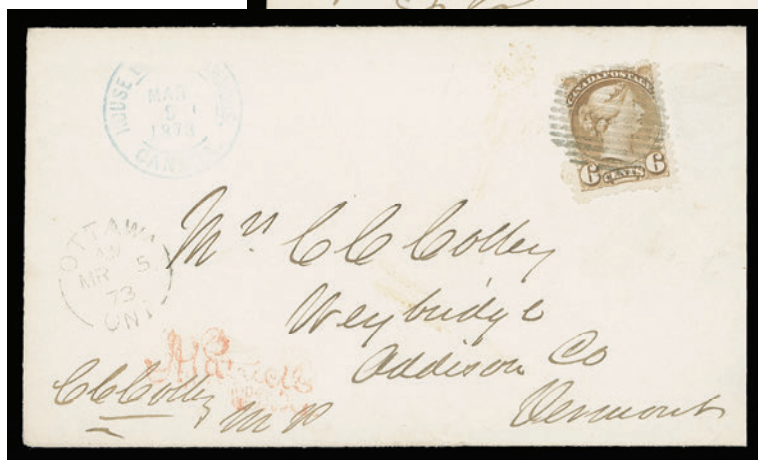 HOUSE
MAR
5
1873
CANADA
CANADA POSTAGE
6 CENTS 6
OTTAWA
AM
MR 5
73
ONT
Mrs C C Colby
Weybridge
Addison Co
Vermont
C C Colby M P